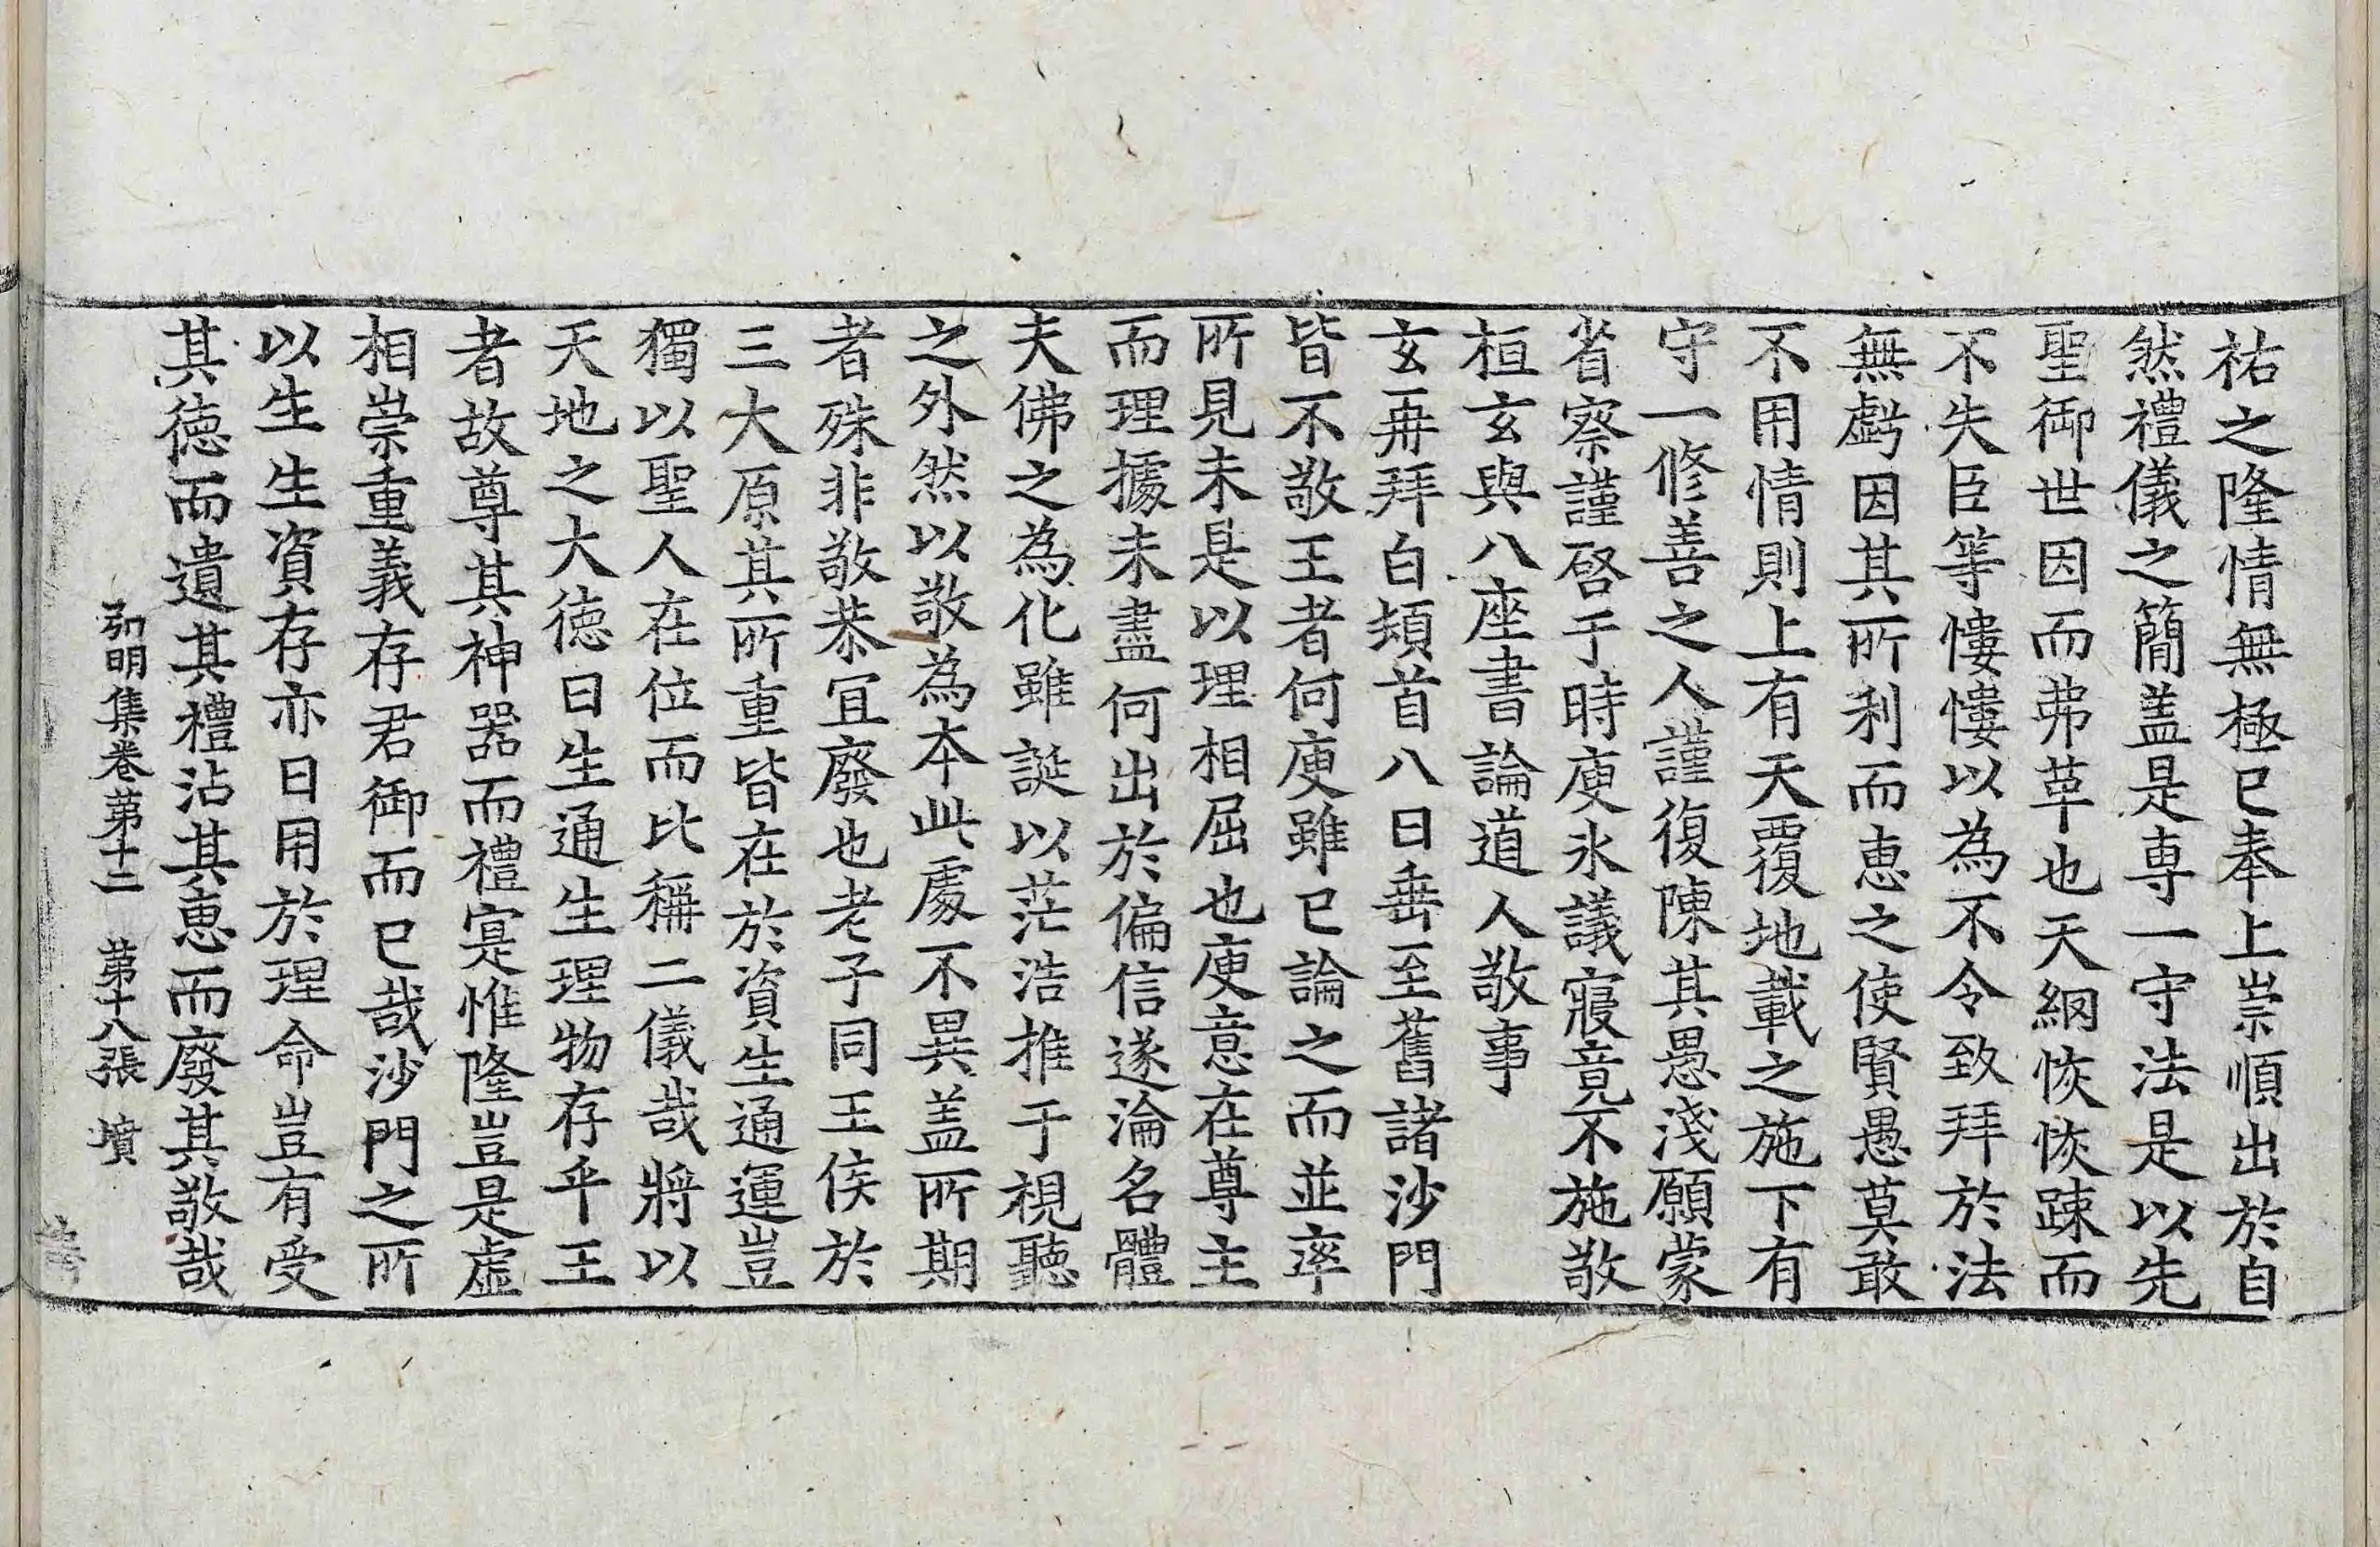 祐之隆情無極已奉上崇順出於自
然禮儀之簡盖是専一守法是以先
聖御世因而弗革也天網恢恢踈而
不失臣等慺慺以為不令致拜於法
無虧因其所利而恵之使賢愚莫敢
不用情則上有天覆地載之施下有
守一修善之人謹復陳其愚淺願蒙
省察謹啓于時庾氷議寢竟不施敬
桓玄與八座書論道人敬事
玄再拜白頻首八日垂至舊諸沙門
皆不敬王者何庾雖已論之而並率
所見未是以理相屈也庾意在尊主
而理據未盡何出於偏信遂淪名體
夫佛之為化雖誕以茫浩推于視聽
之外然以敬為本此處不異盖所期
者殊非敬恭宜廢也老子同王侯於
三大原其所重皆在於資生通運豈
獨以聖人在位而比稱二儀哉將以
天地之大徳曰生通生理物存乎王
者故尊其神器而禮寔惟隆豈是虛
相崇重義存君御而已哉沙門之所
以生生資存亦日用於理命豈有受
其徳而遺其禮沾其恵而廢其敬哉
弘明集卷苐十二　苐十八張　墳